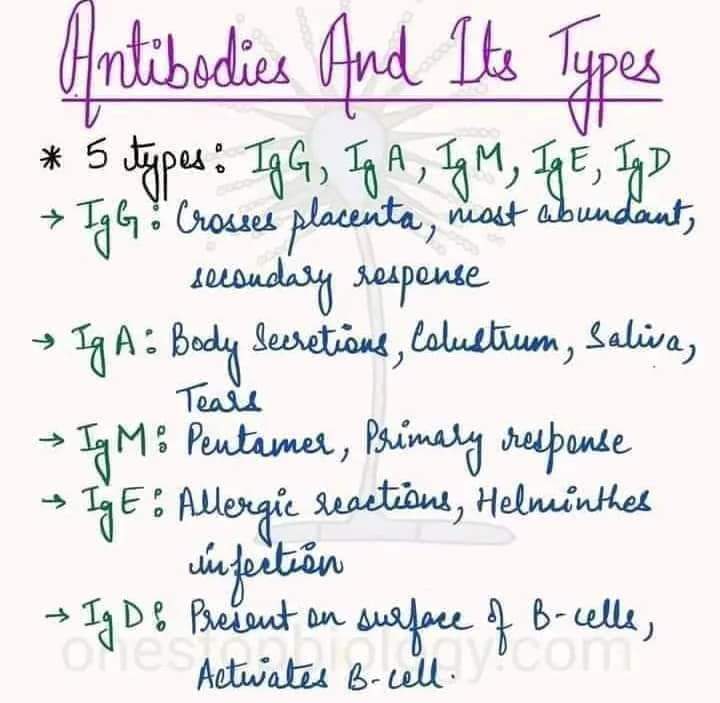 Antibodies And Its Types
* 5 types: IgG, IgA, IgM, IgE, IgD
→ IgG: Crosses placenta, most abundant,
secondary response
→ IgA: Body Secretions, Colustrum, Saliva,
Tears
→ IgM: Pentamer, Primary response
→ IgE: Allergic reactions, Helminthes
infection
→ IgD: Present on surface of B-cells,
onestopbiology.com
Activates B-cell.